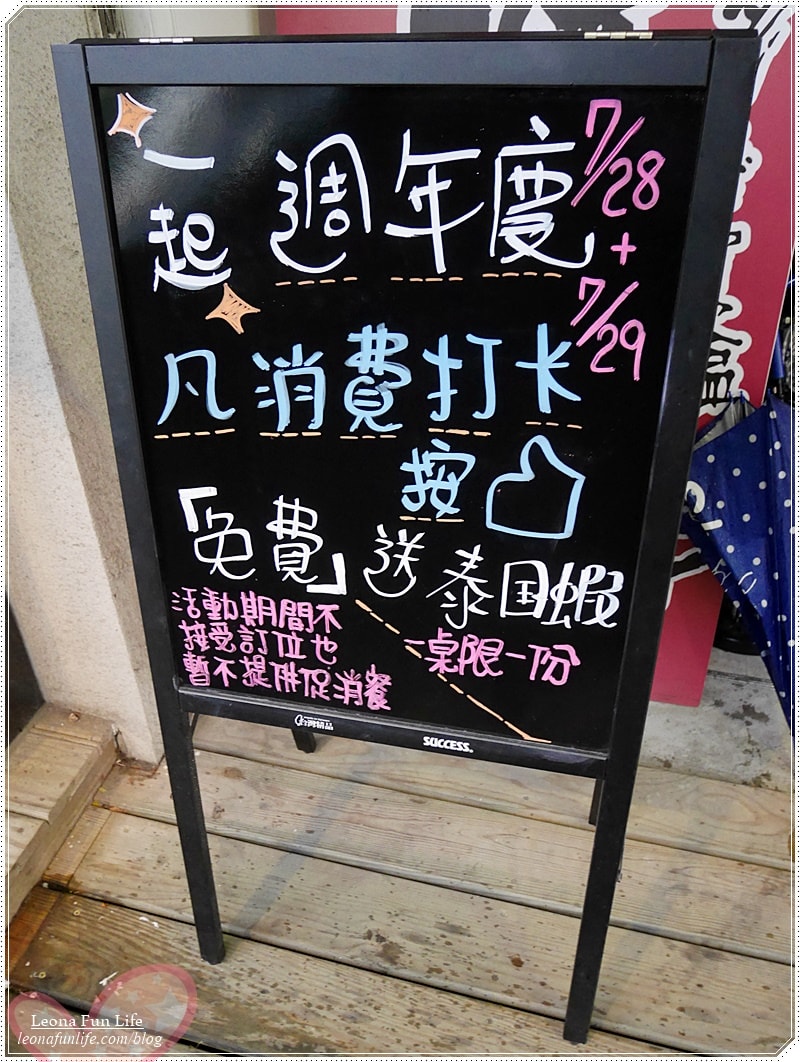 一起 週年度 7/28
+
7/29
凡消費打卡
按
「免費」送泰国蝦
一桌限一份
活動期間不
接受訂位也
暫不提供促消餐
台灣精品
SUCCESS.
Leona Fun Life
leonafunlife.com/blog